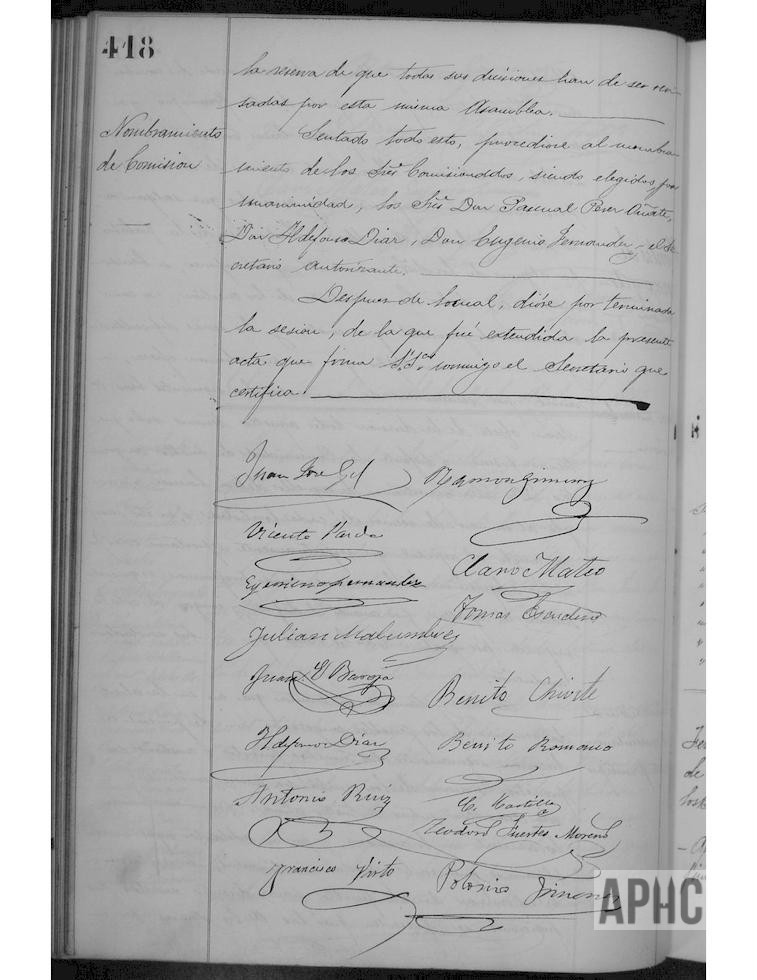 418
la reserva de que todas sus decisiones han de ser revi-
sadas por esta misma Asamblea.
Nombramiento
de Comision
Sentado todo esto, procediose al nombra-
miento de los Sres Comisionados, siendo elegidos por
unanimidad, los Sres Don Pascual Perez Oñate,
Don Ildefonso Diaz, Don Eugenio Fernandez y el Se-
cretario autorizante.
Despues de lo cual, dióse por terminada
la sesion, de la que fué extendida la presente
acta que firma S.Sa. conmigo el Secretario que
certifica.
Juan José Gil
Ramon Gimenez
Vicente Pardo
Claro Mateo
Eugenio Fernandez
Tomas Escudero
Julian
Juan
Benito Chivite
Ildefonso Diaz
Benito Romano
Antonio Ruiz
C. Castilla
Teodoro Fuertes Moreno
Francisco Virto
Polonio Jimenez
APHC